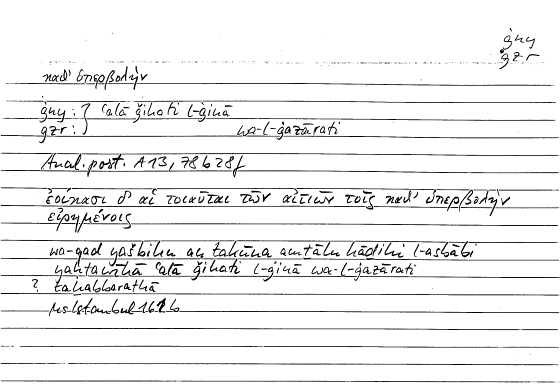 ġny
ġzr
καθ' ὑπερβολήν
ġny : } ʿalā ǧihati l-ġinā
ġzr : } wa-l-ġazārati
Anal. post. A 13, 78 b 28f
ἐοίκασι δ' αἱ τοιαῦται τῶν αἰτιῶν τοῖς καθ' ὑπερβολὴν
εἰρημένοις
wa-qad yašbihu an takūna amtālu hādihi l-asbābi
ʿalā ǧihati l-ġinā wa-l-ġazārati
?
Ms Istanbul